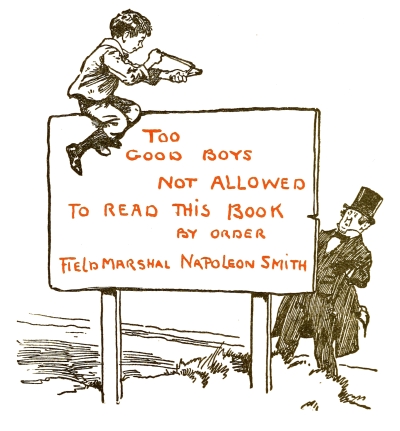 Too
Good Boys
Not Allowed
To Read This Book
By Order
Field Marshal Napoleon Smith